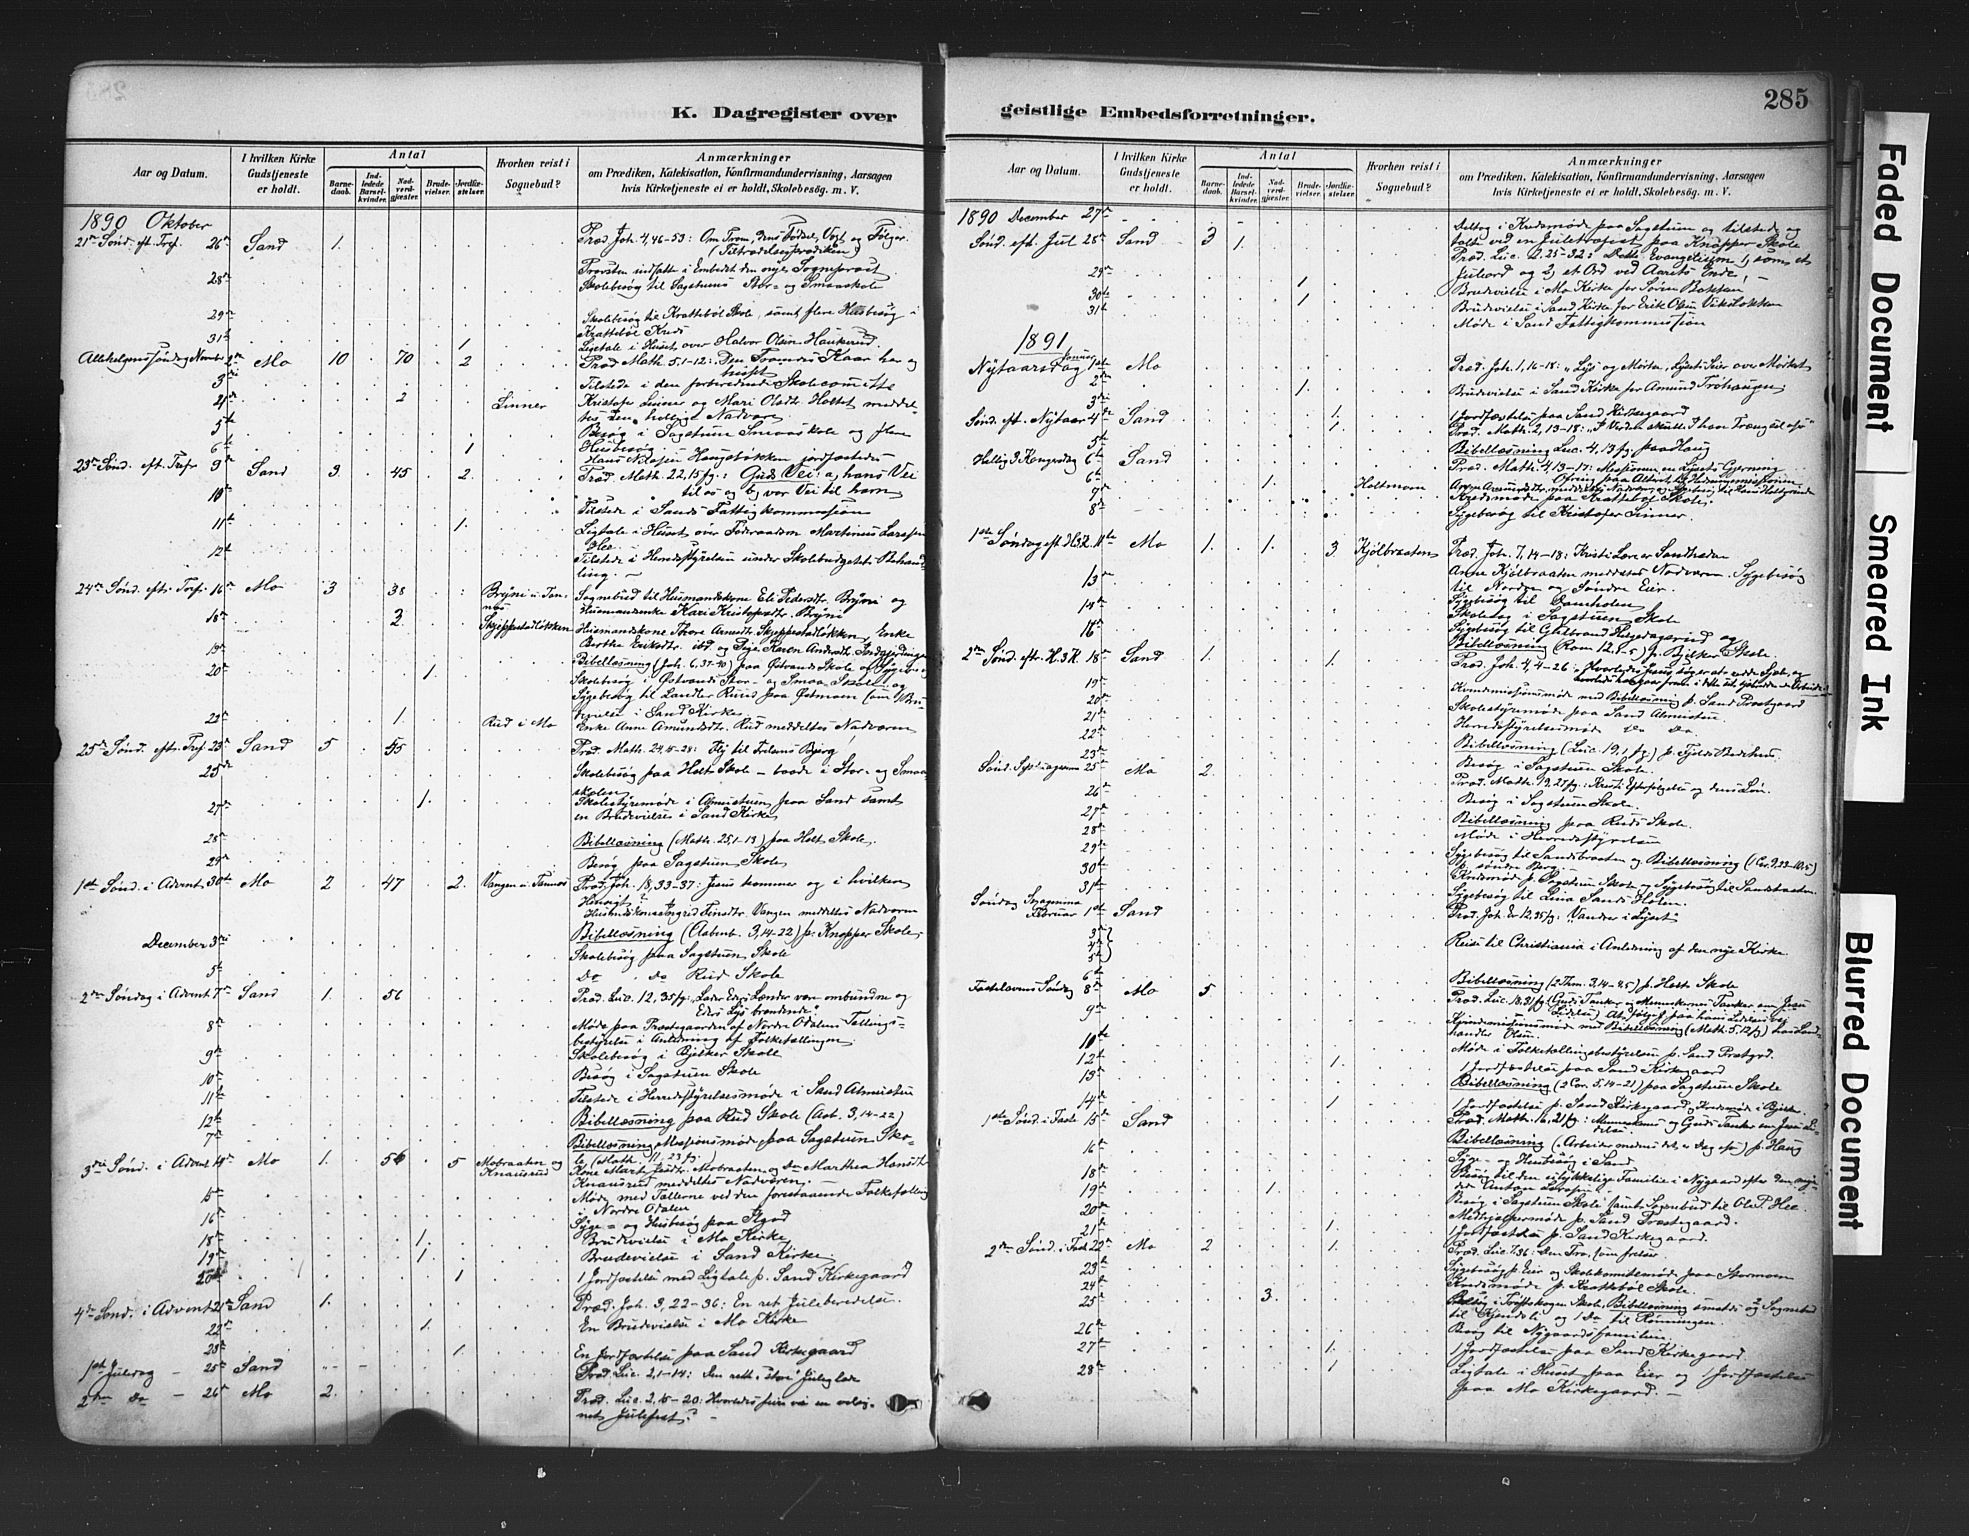 K. Dagregister over
geistlige Embedsforretninger.
285
Aar og Datum.
I hvilken Kirke Gudstjeneste er holdt.
Antal
Barnedaab.
Indledede Barselkvinder.
Nadverdgjæster.
Brudevielser.
Jordfæstelser.
Hvorhen reist i Sognebud?
Anmærkninger
om Prædiken, Katekisation, Konfirmandundervisning, Aarsagen
hvis Kirketjeneste ei er holdt, Skolebesøg. m. V.
1890 Oktober
21de Sønd. eft. Tref. 26de Sand 1. Præd. Joh. 4, 46-53: Om Troen, dens Fødsel, Vext og Følger.
(Tiltrædelsesprædiken)
Provsten indsatte i Embedet den nye Sogneprest
28de Skolebesøg til Sagstuens Stor- og Smaaskole
29de Skolebesøg til Krattebøl Skole, samt flere Husbesøg i
Krattebøl Kreds
31te 1 Ligtale i Huset over Halvor Olsen Haukerud.
Allehelgenssøndag Novembr 2den Mo 10 70 2 Præd. Math. 5, 1-12: Den Frommes Kaar her og
hisset
3die Tilstede i den forberedende Skolecomitte
4de 2 Linner Kristofer Linner og Mari Olsdtr. Holtet meddel-
tes den hellige Nadvere
5te Besøg i Sagstuen Smaaskole og flere
Husbesøg
6te 1
23de Sønd. eft. Tref. 9de Sand 3 45 2. Præd. Math. 22, 15 fg.: Guds Vei: a, hans Vei
til os og b, vor Vei til ham
10de Tilstede i Sands Fattigkommission
11te 1. Ligtale i Huset over
12te Tilstede i Herredsstyrelsen under Skolebudgetets Behand-
ling. -
24de Sønd. eft. Tref. 16de Mo 3 38 Sognebud til Husmandskone Eli Pedersdtr. Bryni og
18de 2 Skjeppestadløkken Husmandsenke Kari Kristofersdtr. Bryni
19de Bibellæsning (Joh. 6, 37-40) paa Østvands Skole
20de 1. Skolebesøg i Østvands Stor- og Smaa Skole
22de 1. Rud i Mo Enke Anne Amundsdtr. Rud meddeltes Nadveren
25de Sønd. eft. Tref. 23de Sand 5 55 Præd. Math. 24, 15-28: Fly til Frelsens Bjerg!
25de Skolebesøg paa Holt Skole - baade i Stor- og Smaa
skolen
27de 1. Skolestyremøde i Almistuen paa Sand samt
en Brudevielse i Sand Kirke
28de Bibellæsning (Math. 25, 1-13) paa Holt Skole.
29de Besøg paa Sagstuen Skole
1ste Sønd. i Advent 30te Mo 2 47 2. Præd. Joh. 18, 33-37: Jesus kommer og i hvilken
Hensigt?
December 3die Bibellæsning (Aabenb. 3, 14-22) p. Knapper Skole
Skolebesøg paa Sagstuen Skole
5te Do Do Rud Skole
2den Søndag i Advent 7de Sand 1. 56 Præd. Luc. 12, 35 fg.: Lader Eders Lænder være ombundne og
Eders Lys brændende.
8de Møde paa Præstegaarden af Nordre Odalens Tællings-
bestyrelse i Anledning af Folketællingen
9de Skolebesøg i Bjelker Skole
10de Besøg i Sagstuen Skole
11te Tilstede i Herredsstyrelsesmøde i Sand Almistuen
12te Bibellæsning paa Rud Skole (Aab. 3, 14-22)
7de Bibellæsning Missionsmøde paa Sagstuen Sko-
le (Math. 11, 23 fg.)
3die Sønd. i Advent 14de Mo 1. 56 5 Mobraaten og Knausrud Kone
Knausrud meddeltes Nadveren.
15de Møde med Tællerne ved den forestaaende Folketælling
i Nordre Odalen
16de Syge- og Husbesøg paa
18de 1. Brudevielse i Mo Kirke
19de 1. Brudevielse i Sand Kirke
20de 1 1 Jordfæstelse med Ligtale p. Sand Kirkegaard
4de Sønd. i Advent 21de Sand 1. Præd. Joh. 3, 22-36: En ret Juleberedelse.
22de 1. En Brudevielse i Mo Kirke
23de 1. En Jordfæstelse paa Sand Kirkegaard
1ste Juledag - 25de Sand Præd. Luc. 2, 1-14: Den rette store Juleglæde
2den Do - 26de Mo 2. Præd. Luc. 2, 15-20: Hvorledes feire vi en velsig-
net Julefest? -
Aar og Datum.
I hvilken Kirke Gudstjeneste er holdt.
Antal
Barnedaab.
Indledede Barselkvinder.
Nadverdgjæster.
Brudevielser.
Jordfæstelser.
Hvorhen reist i Sognebud?
Anmærkninger
om Prædiken, Katekisation, Konfirmandundervisning, Aarsagen
hvis Kirketjeneste ei er holdt, Skolebesøg. m. V.
1890 December 27de Deltog i Kredsmøde paa Sagstuen og tilstede og
talte ved en Juletræfest paa Knapper Skole
Sønd. eft. Jul 28de Sand 3 1. Præd. Luc. 2, 25-32: Dette Evangelium 1, som et
Juleord og 2, et Ord ved Aarets Ende. -
29de 1 Brudevielse i Mo Kirke for Søren Bakken
30te 1 Brudevielse i Sand Kirke for Erik Olsen
31te Møde i Sand Fattigkommission
1891
Januar
Nytaarsdag 1ste Mo Præd. Joh. 1, 16-18: "Lys og Mørke, Lysets Seier over Mørket
2den 1. Brudevielse i Sand Kirke for Amund Trøhaugen
3die 1. 1 Jordfæstelse paa Sand Kirkegaard
Sønd. eft. Nytaar 4de Sand 1. Præd. Math. 2, 13-18: "I Verden skulle I have Trængsel osv."
5te Bibellæsning Luc. 4, 13 fg. paa Haug
Hellig 3 Kongersdag 6te Sand Præd. Math. 4, 13-17: Missionen en Lysets Gjerning
6te 1. Holtmoen
7de Kredsmøde paa Krattebøl Skole
8de Sygebesøg til Kristofer Linner.
1ste Søndag eft. H.3.K. 11te Mo 1. 1. 3. Kjølbraaten Præd. Joh. 7, 14-18: Kristi Lære er Sandheden
Anne Kjølbraaten meddeltes Nadveren. Sygebesøg
13de til Nordre og Søndre Eier.
14de Sygebesøg til
Skolebesøg i Sagstuen Skole
16de Sygebesøg til Gulbrand Helgedagsrud og
Bibellæsning (Rom 12, 1-5) p. Bjelker Skole.
2den Sønd. eft. H.3.K. 18de Sand 1. 1. Præd. Joh. 4, 4-26:
19de Kvindemissionsmøde med Bibellæsning p. Sand Præstgaard
20de Skolestyremøde paa Sand Almistue
21de Herredsstyrelsesmøde Do Do
22de Bibellæsning (Luc. 19, 1 fg.) p. Fjelds Bedehus
23de Besøg i Sagstuen Skole.
Sønd. Septuagesima 25de Mo 2. Præd. Math. 19, 27 fg.: Kristi Efterfølgelse og dens Løn.
26de Besøg i Sagstuen Skole.
27de Bibellæsning paa Ruds Skole.
28de Møde i Herredsstyrelsen
29de Sygebesøg til Sandsbraaten og Bibellæsning (1 Cor. 9, 23-10, 5)
p. søndre Berg
30te Kredsmøde p. Sagstuen Skole og Sygebesøg til Sandsbraaten.
31te Sygebesøg til Lina Sands Holen.
Søndag Sexagesima Februar 1ste Sand Præd. Joh. Ev. 12, 35 fg.: "Vandrer i Lyset."
3die
4de
5te Reise til Christiania i Anledning af den nye Kirke
6te Bibellæsning (2 Thim. 3, 14-4, 5) p. Holt Skole
Fastelavens Søndag 8de Mo 5. Præd. Luc. 18, 31 fg.: Guds Tanker og Menneskenes Tanker om Jesu
Lidelse.
9de Kvindemissionsmøde med Bibellæsning (Math. 5, 12 fg.) hos Land-
handler Olsen.
10de Møde i Folketællingsbestyrelsen p. Sand Præstgrd.
12te 1. 1 Jordfæstelse paa Sand Kirkegaard
13de Bibellæsning (2 Cor. 5, 14-21) paa Sagstuen Skole
14de 1. 1 Jordfæstelse p. Sand Kirkegaard og Kredsmøde i Bjelke.
1ste Sønd. i Faste 15de Sand Præd. Math. 16, 21 fg.: Menneskenes og Guds Tanker om Jesu Li-
delse.
16de Bibellæsning (Arbeider medens det er Dag osv.) p. Haug
Syge- og Husbesøg i Sand
18de Besøg til den ulykkelige Familie i Nygaard
19de 1. Besøg i Sagstuen Skole samt Sognebud til Ole P. Hee.
20de Medhjælpermøde p. Sand Præstegaard.
21de 1. 1 Jordfæstelse p. Sand Kirkegaard.
2den Sønd. i Faste 22de Mo 2 1. Præd. Luc. 7, 36: Den Tro, som frelser.
23de Sygebesøg p. Eier og Skolekomitemøde paa Stormoen
24de Kredsmøde p. Krattebøl Skole.
25de 3. Besøg i Trøftskogen Skole, Bibellæsning smstds og 2 Sognebud
til Gjendøli og 1 Do til Rønningen.
26de Besøg til Nygaardsfamilien.
27de 1. 1 Jordfæstelse paa Sand Kirkegaard.
28de 1 Ligtale i Huset paa Eier og 1 Jordfæstelse
paa Mo Kirkegaard. -
Faded Document
Smeared Ink
Blurred Document